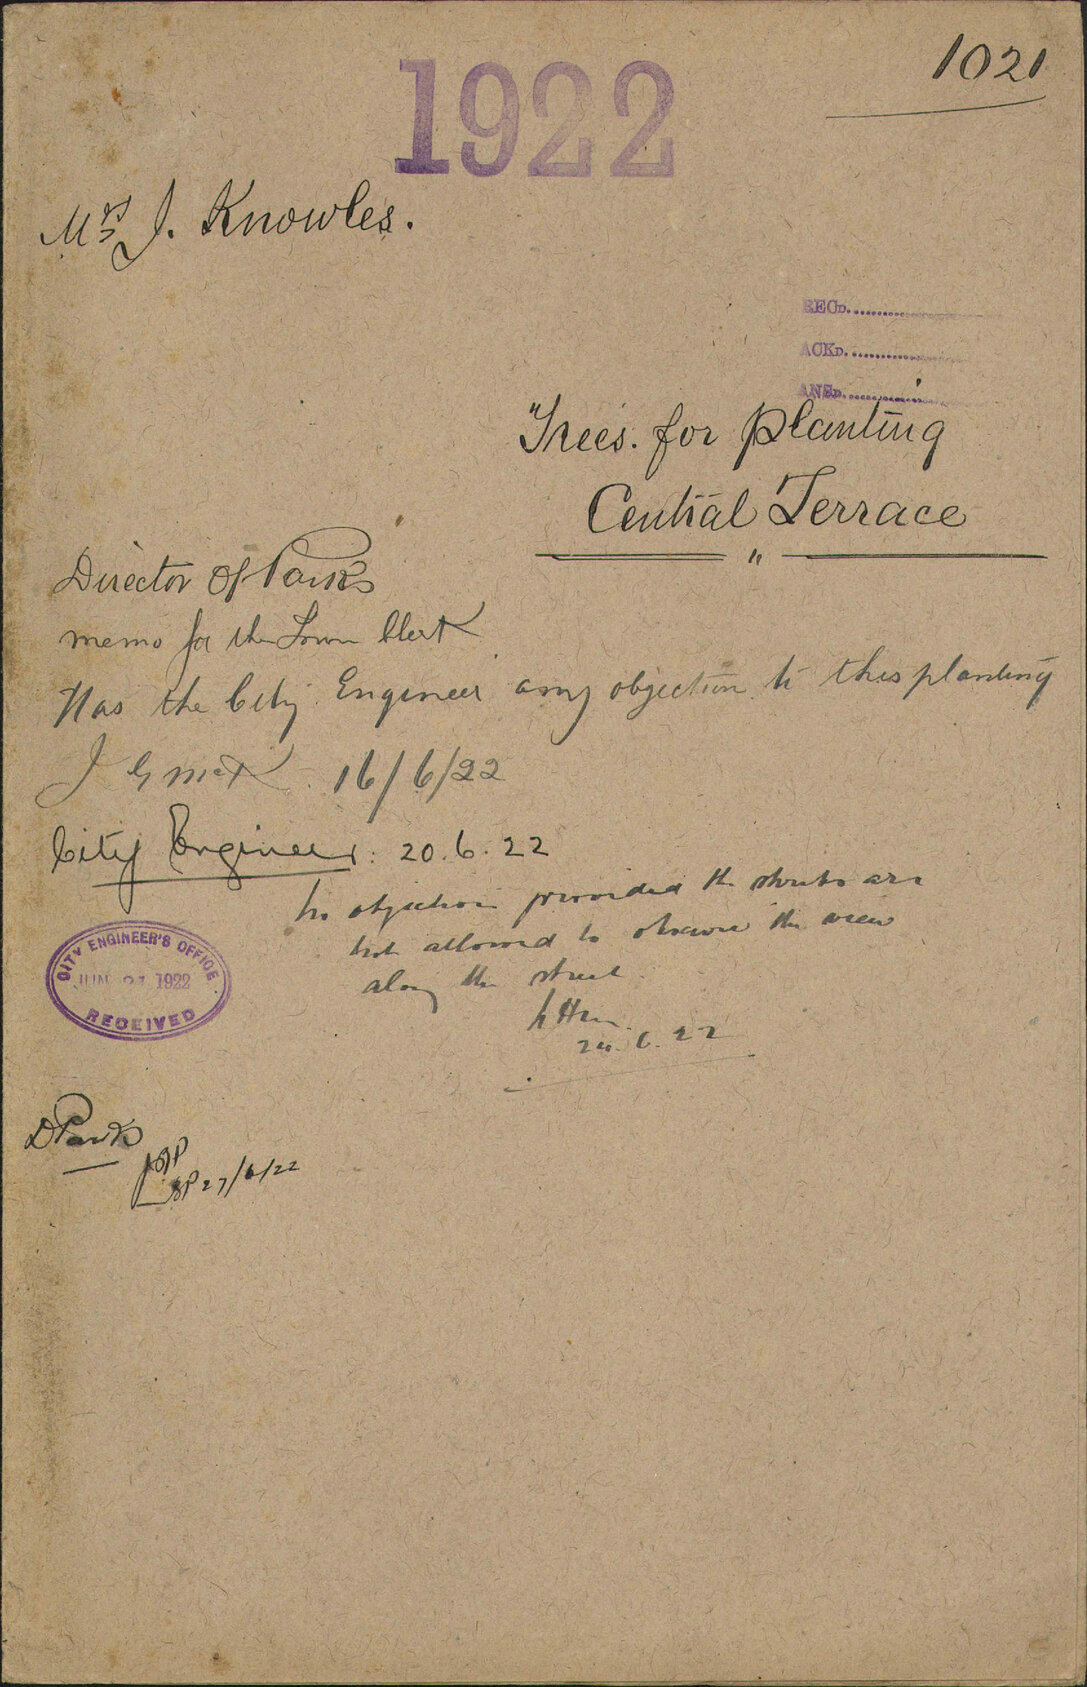 1021
1922
Mrs J. Knowles.
RECD.
ACKD.
ANSD.
"Trees. for planting
Central Terrace
"
Director of Parks
memo for the Town Clerk
Has the City Engineer any objection to this planting
J G McK 16/6/22
City Engineer: 20.6.22
No objection provided the shrubs are
not allowed to obscure the view
along the street.
6.22
CITY ENGINEER'S OFFICE
JUN 21 1922
RECEIVED
D Parks
27/6/22